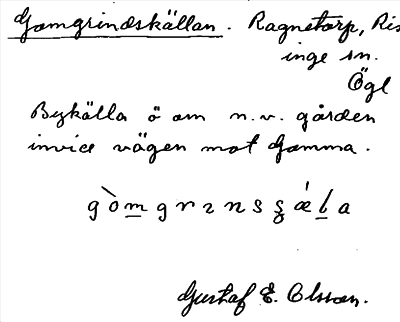 Gamgrindskällan. Ragnetorp, Ris
inge sn.
Ögl
Bykälla ö om n.v. gården
invid vägen mot Gamma.
Gustaf E. Olsson.